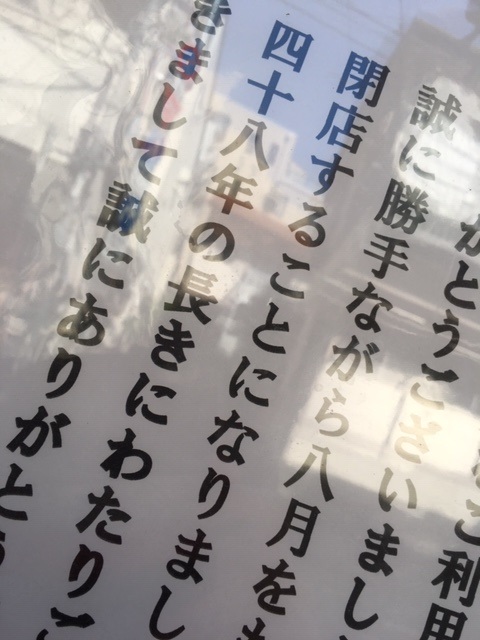 ご利用
がとうございまし
誠に勝手ながら八月をも
閉店することになりまし
四十八年の長きにわたりご
きまして誠にありがとう